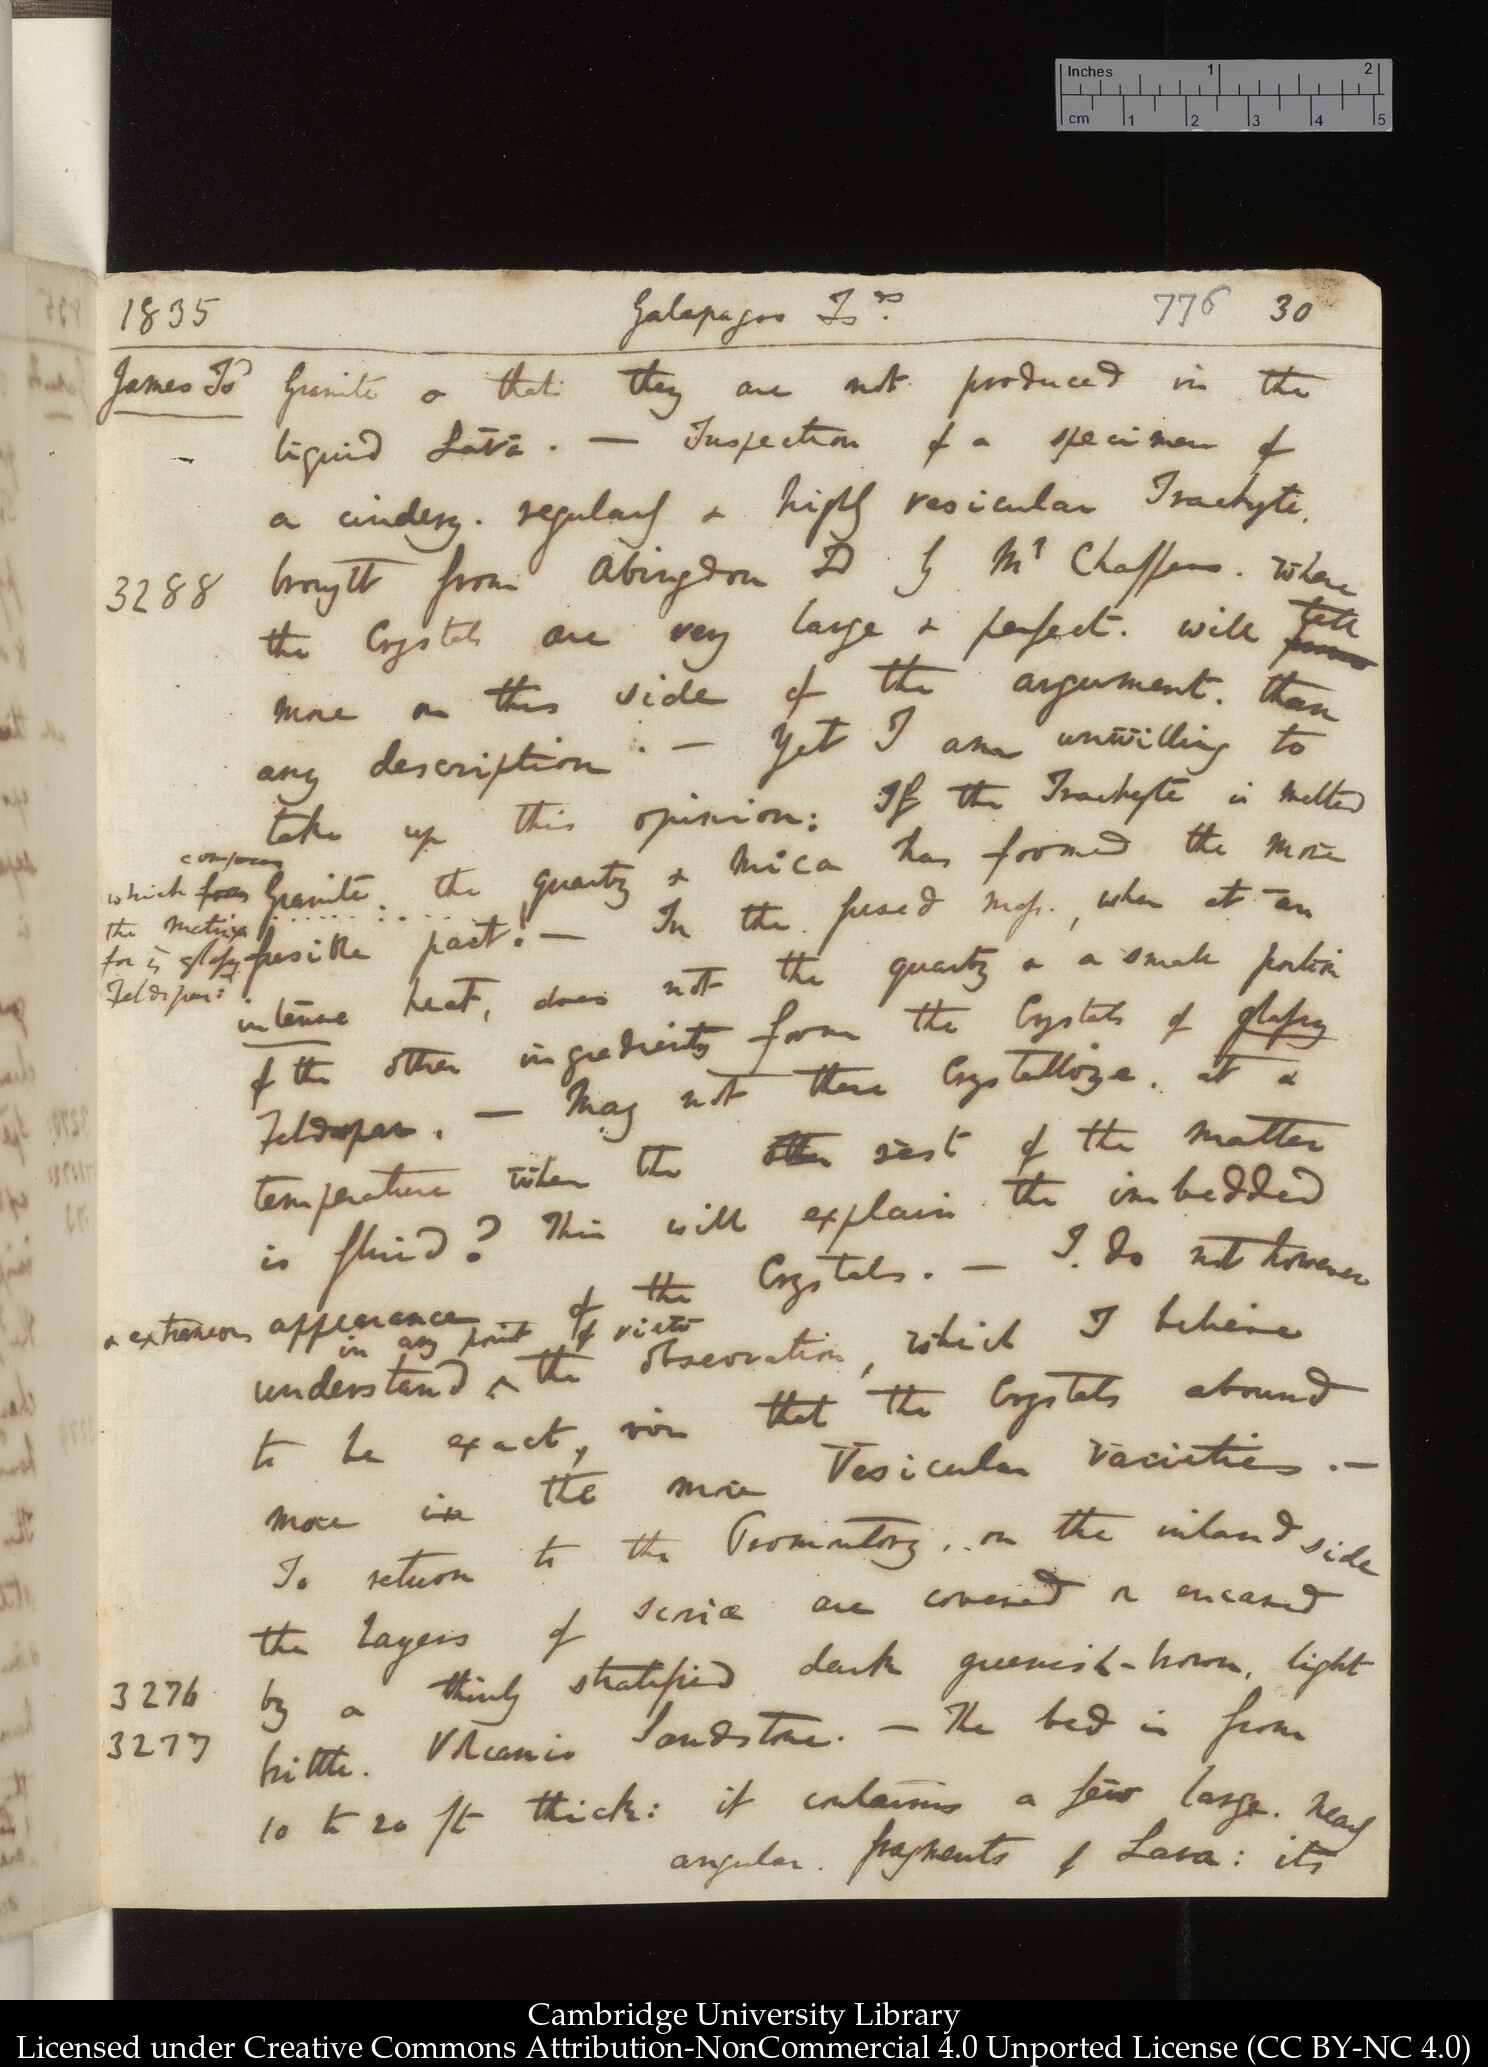 Inches 1 2
cm 1 2 3 4 5
1835 Galapagos Is. 776 30
James Isd Granite & that they are not produced in the
liquid Lava. — Inspection of a specimen of
a cindery. regularly & highly vesicular Trachyte,
3288 brought from Abingdon Isd by Mr Chaffers. where
the Crystals are very large & perfect. will tell
more on this side of the argument. than
any description. — Yet I am unwilling to
take up this opinion: If the Trachyte is melted
composes
which form Granite. the quartz & Mica has formed the more
the matrix
for ys glassy fusible part. — In the fused mass, when at an
Feldspar:
intense heat, does not the quartz & a small portion
of the other ingredients form the Crystals of glassy
Feldspar. — May not these Crystallize. at a
temperature when the other rest of the matter
is fluid? This will explain the imbedded
& extraneous appearance of the Crystals. — I do not however
in any point of view
understand ^ the observation, which I believe
to be exact, viz that the Crystals abound
more in the more Vesicular varieties. —
To return to the Promontory, on the inland side
the layers of scoriæ are covered or encased
3276 by a thinly stratified dark greenish-brown, light
3277 brittle. Volcanic Sandstone. — The bed is from
10 to 20 ft thick: it contains a few large. nearly
angular. fragments of Lava: its
Cambridge University Library
Licensed under Creative Commons Attribution-NonCommercial 4.0 Unported License (CC BY-NC 4.0)